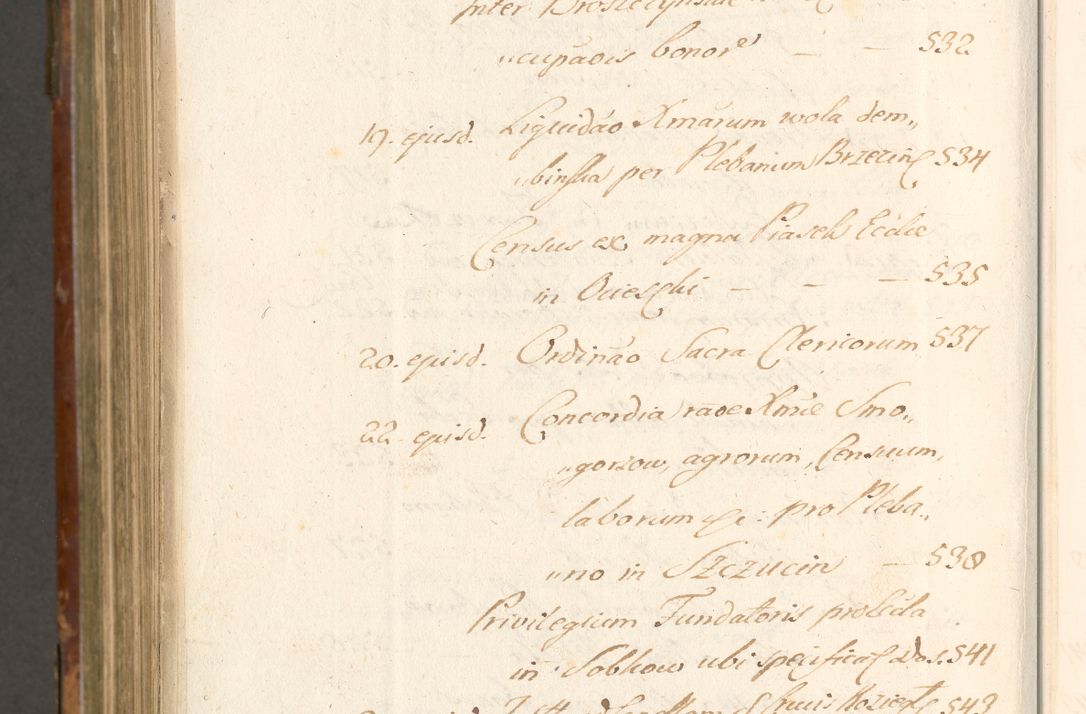 Inter
ucupãois bonor̃ — — 532
19. ejusd. Liquidão Xmarum wola dem„
„binska per Plebanum Brzezinȩ 534
Census ex magna Piasek Ecclie
in — — — 535
20. ejusd. Ordinão Sacra Clericorum 537
22. ejusd. Concordia rãoe Xmæ Smo„
„gorzow, agrorum, Censuum,
laborum &c: pro Pleba„
„no in Szczucin — 538
Privilegium Fundatoris pro Eccla
in Sobkow ubi specificaȩ Dos. 541
543